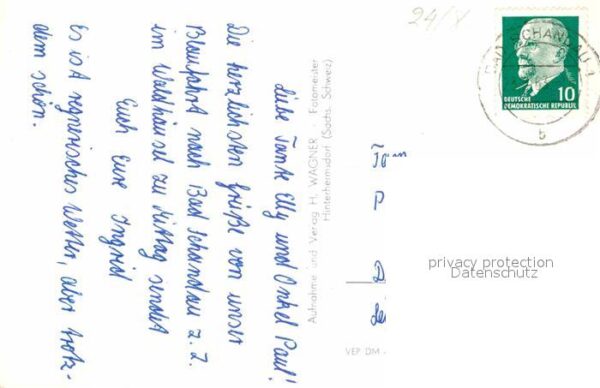 Liebe Tante Elly und Onkel Paul!
Die herzlichsten Grüße von unser
Blaufahrt nach Bad Schandau z. Z.
im Waldhäusel zu Mittag sendet
Euch Eure Ingrid
Es ist regnerisches Wetter, aber trotz-
dem schön.
Aufnahme und Verlag H. WAGNER, Fotomeister
Hinterhermsdorf (Sächs. Schweiz)
24/X
BAD SCHANDAU 1
b
10
DEUTSCHE
DEMOKRATISCHE REPUBLIK
P
D
VEP DM
privacy protection
Datenschutz